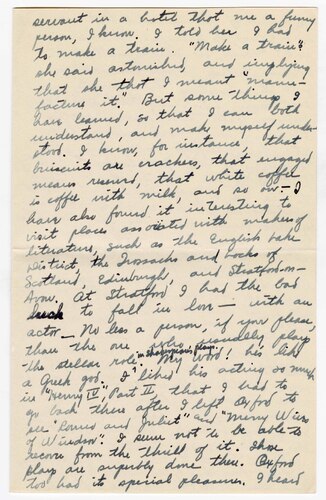 servant in a hotel thot me a funny
person, I know. I told her I had
to make a train. "Make a train"?
she said astonished, and implying
that she thot I meant "manu-
facture it." But some things I
have learned, so that I can both
understand, and make myself under-
stood. I know, for instance, that
biscuits are crackers, that engaged
means reserved, that white coffee
is coffee with milk, and so on — I
have also found it interesting to
visit places associated with makers of
literature, such as the English Lake
District, the Trossachs and Locks of
Scotland, Edinburgh, and Stratford-on-
Avon. At Stratford I had the bad
luck to fall in love — with an
actor — No less a person, if your please,
than the one who usually plays
the stellar role in Shakespeare's plays. My word! his like
a Greek god. I liked his acting so much
in "Henry IV, Part II, that I had to
go back there after I left Oxford to
see "Romeo and Juliet" and "Merry Wives
of Windsor". I seem not to be able to
recover from the thrill of it. Those
plays are superbly done there. Oxford
too had its special pleasures. I heard